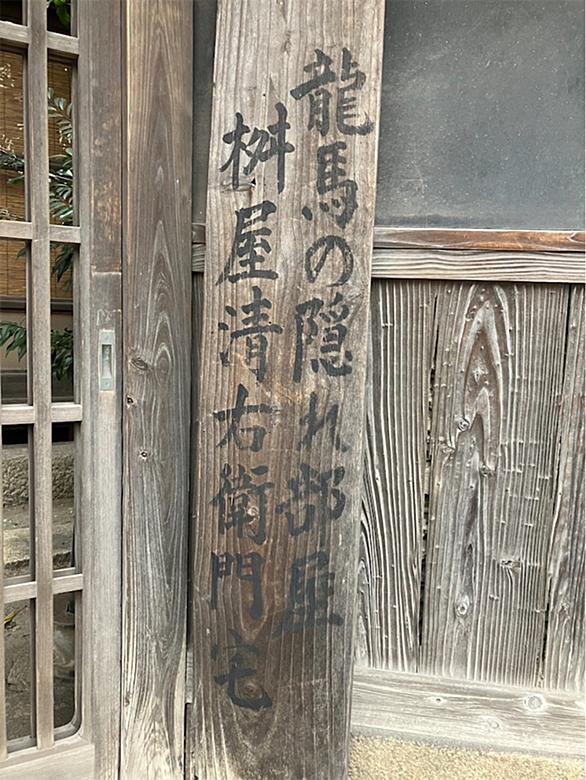 龍馬の隠れ部屋
桝屋清右衛門宅